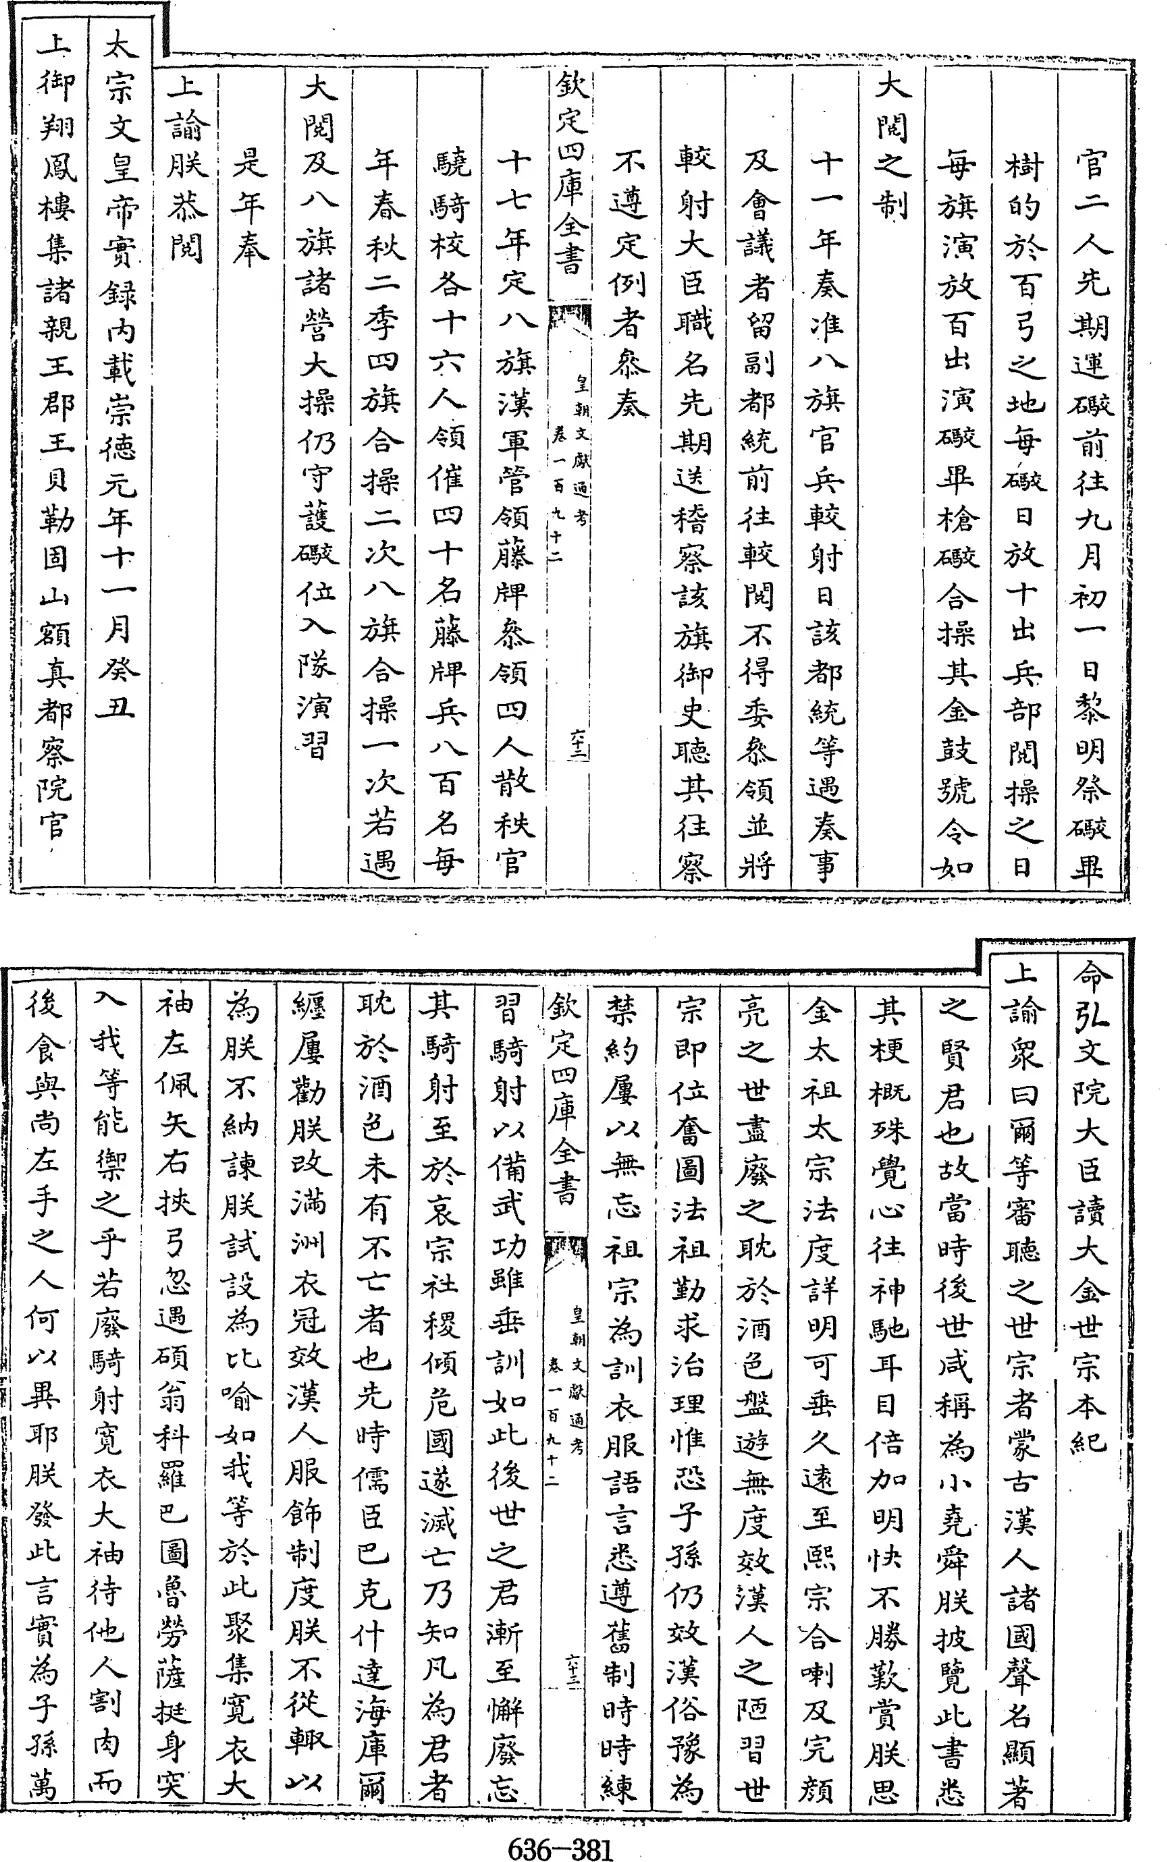 官二人先期運礮前往九月初一日黎明祭礮畢
樹的於百弓之地每礮日放十出兵部閱操之日
每旗演放百出演礮畢槍礮合操其金鼓號令如
大閱之制
十一年奏准八旗官兵較射日該都統等遇奏事
及會議者留副都統前往較閱不得委叅領並將
較射大臣職名先期送稽察該旗御史聽其往察
不遵定例者叅奏
欽定四庫全書
皇朝文獻通考
卷一百九十二
六十三
十七年定八旗漢軍管領藤牌叅領四人散秩官
驍騎校各十六人領催四十名藤牌兵八百名每
年春秋二季四旗合操二次八旗合操一次若遇
大閱及八旗諸營大操仍守護礮位入隊演習
是年奉
上諭朕恭閱
太宗文皇帝實錄內載崇德元年十一月癸丑
上御翔鳳樓集諸親王郡王貝勒固山額真都察院官
命弘文院大臣讀大金世宗本紀
上諭眾曰爾等審聽之世宗者蒙古漢人諸國聲名顯著
之賢君也故當時後世咸稱為小堯舜朕披覽此書悉
其梗概殊覺心往神馳耳目倍加明快不勝歎賞朕思
金太祖太宗法度詳明可垂久遠至熙宗合喇及完顏
亮之世盡廢之耽於酒色盤遊無度效漢人之陋習世
宗即位奮圖法祖勤求治理惟恐子孫仍效漢俗豫為
禁約屢以無忘祖宗為訓衣服語言悉遵舊制時時練
欽定四庫全書
皇朝文獻通考
卷一百九十二
六十三
習騎射以備武功雖垂訓如此後世之君漸至懈廢忘
其騎射至於哀宗社稷傾危國遂滅亡乃知凡為君者
耽於酒色未有不亡者也先時儒臣巴克什達海庫爾
纏屢勸朕改滿洲衣冠效漢人服飾制度朕不從輙以
為朕不納諫朕試設為比喻如我等於此聚集寬衣大
袖左佩矢右挾弓忽遇碩翁科羅巴圖魯勞薩挺身突
入我等能禦之乎若廢騎射寬衣大袖待他人割肉而
後食與尚左手之人何以異耶朕發此言實為子孫萬
636-381